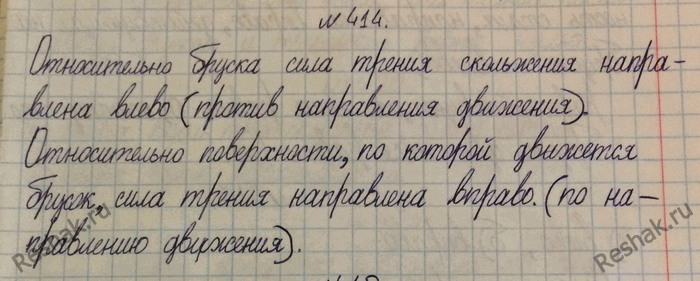 № 414.
Относительно бруска сила трения скольжения напра-
влена влево (против направления движения).
Относительно поверхности, по которой движется
брусок, сила трения направлена вправо. (по на-
правлению движения).
Reshak.ru
Reshak.ru